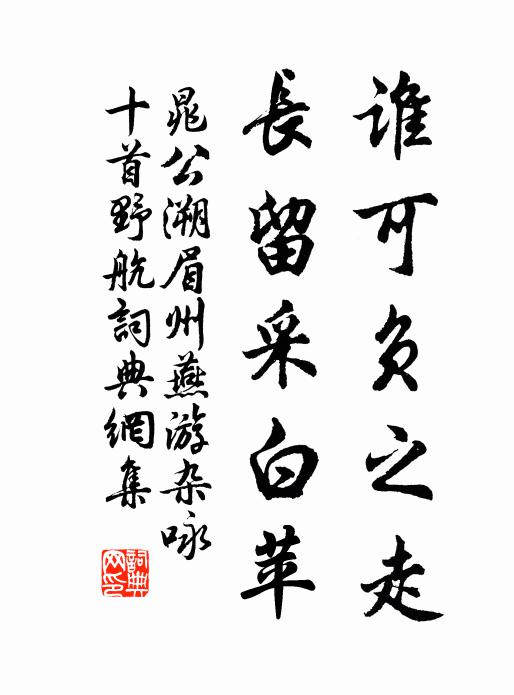 誰可負之走
長留采白苹
晁公溯眉州燕游杂咏
十首野航詞典網集
詞典网印